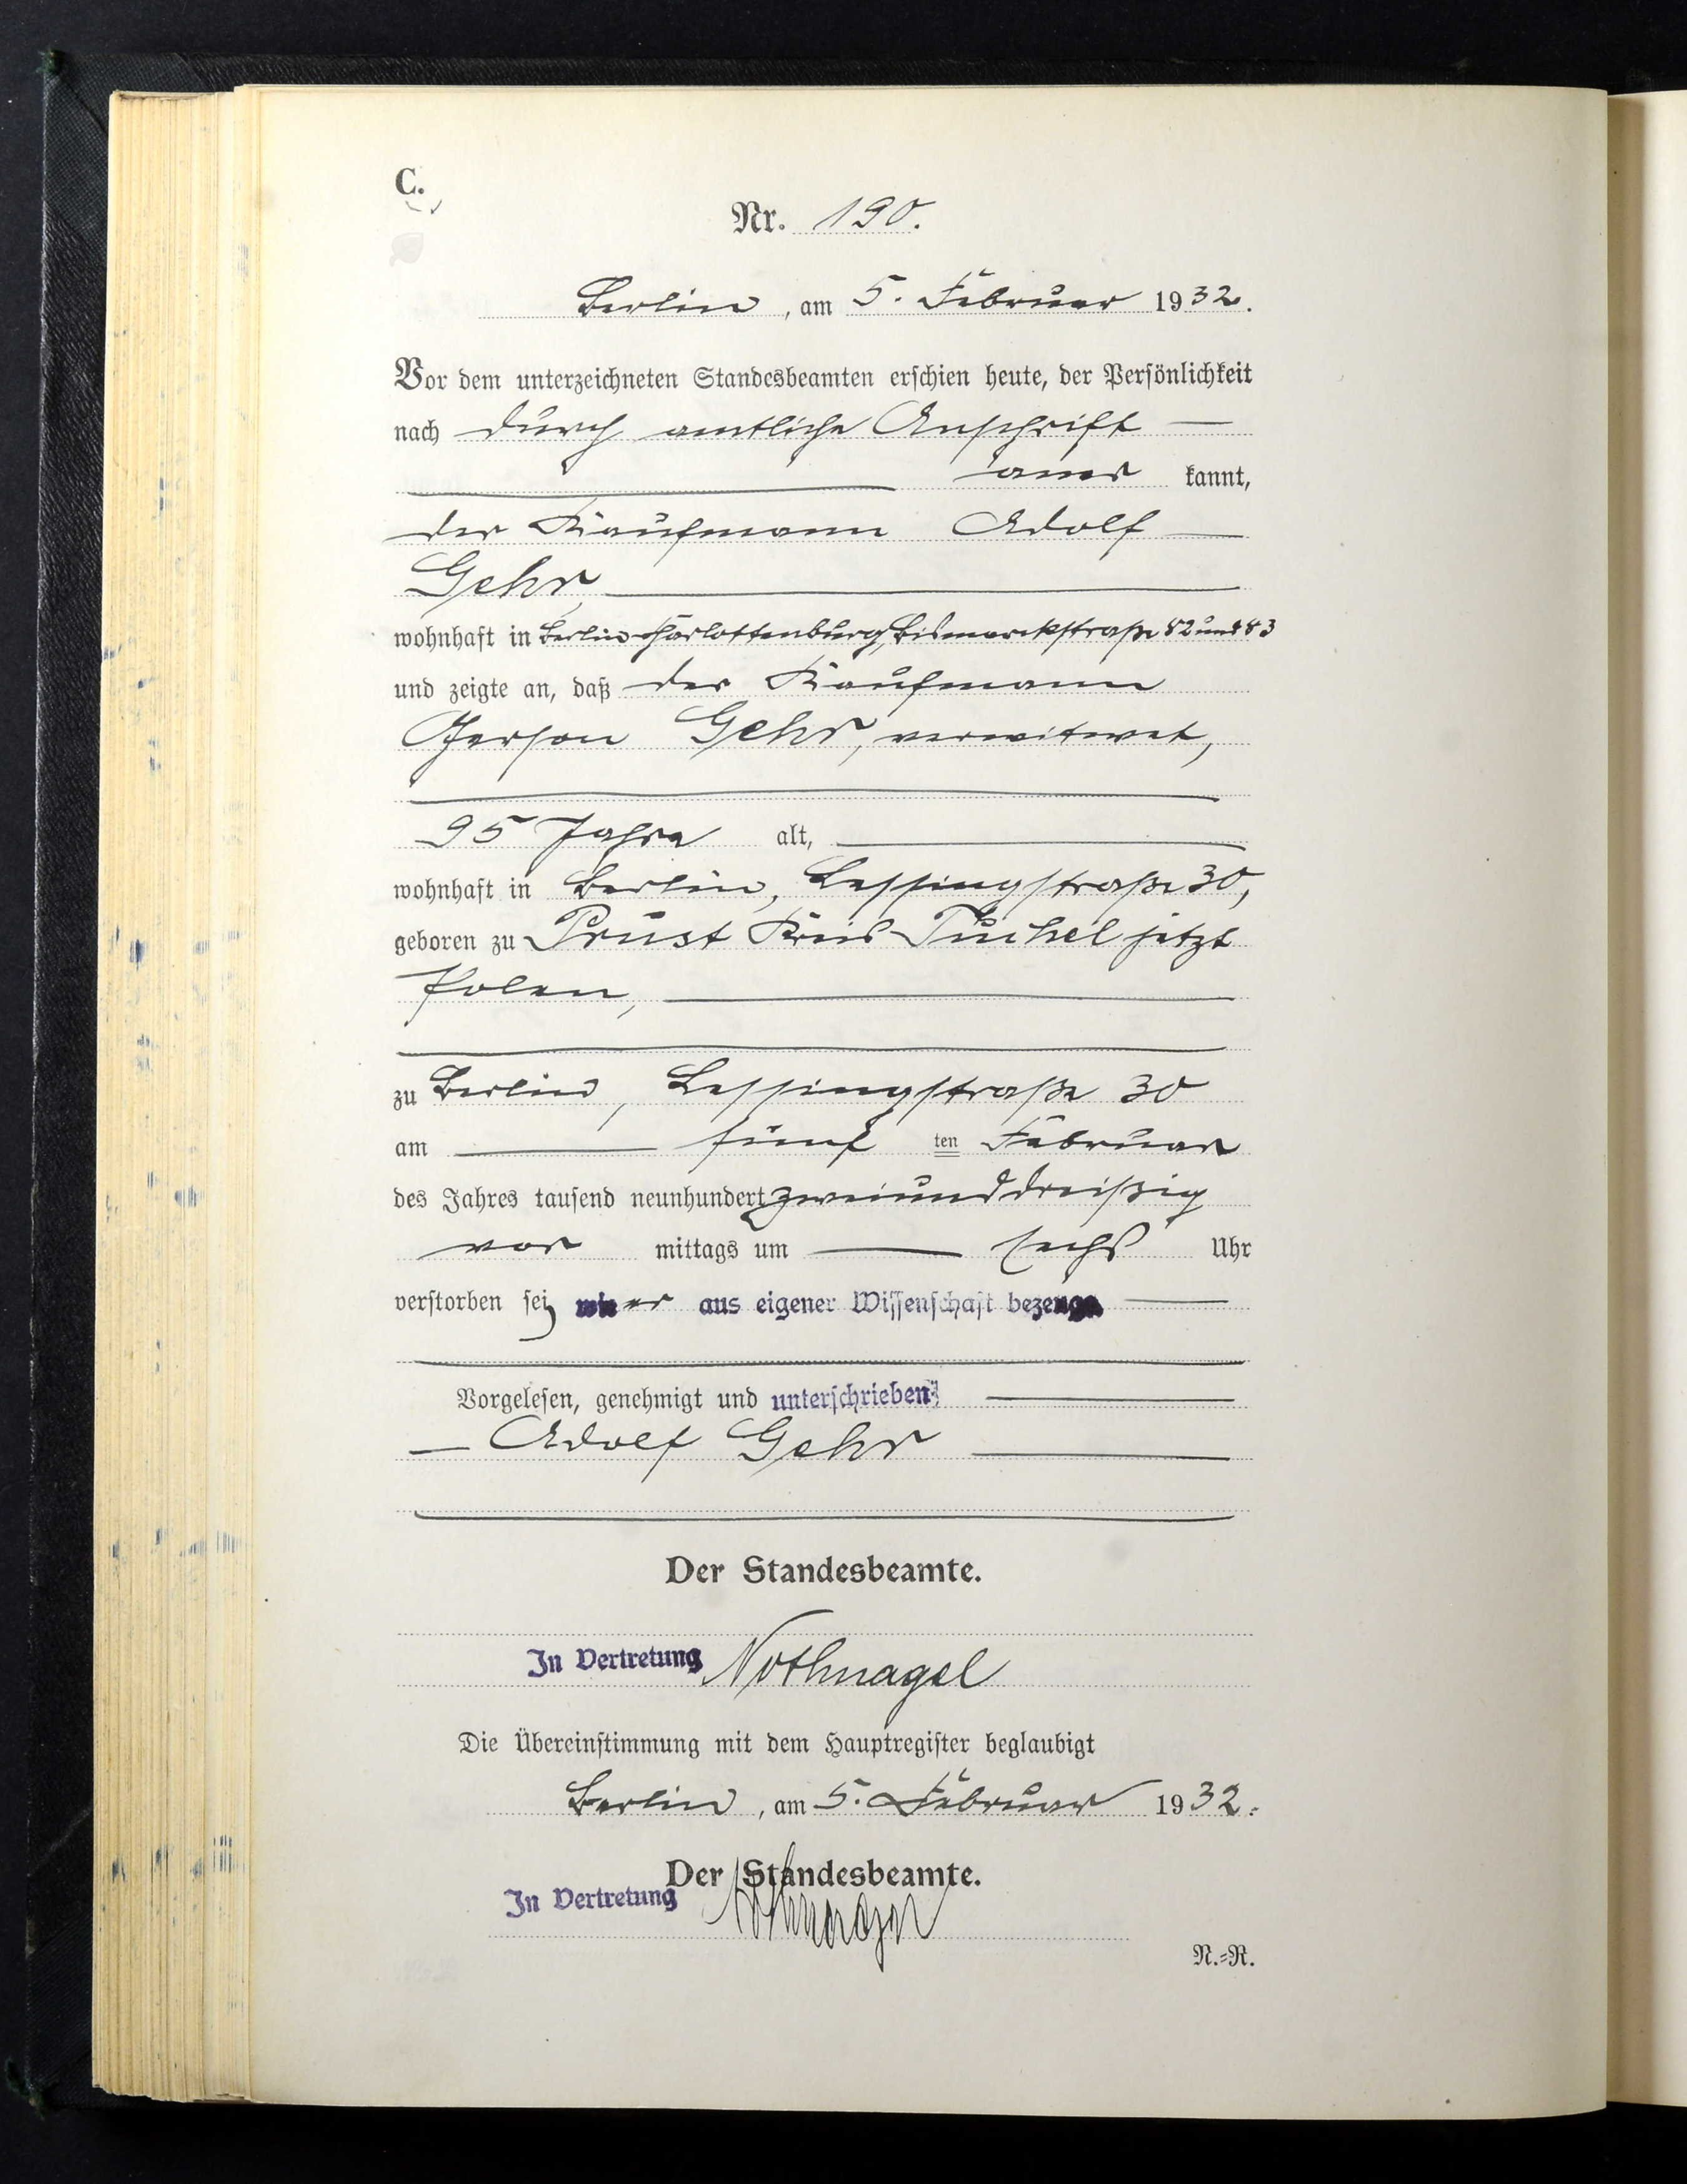 C.
Nr. 190.
Berlin, am 5. Februar 1932.
Vor dem unterzeichneten Standesbeamten erschien heute, der Persönlichkeit
nach durch amtliche Anschrift
aner kannt,
der Kaufmann Adolf
Gehr,
wohnhaft in Berlin-Charlottenburg, Bismarckstraße 82 und 83
und zeigte an, daß der Kaufmann
Gerson Gehr, verwitwet,
95 Jahre alt,
wohnhaft in Berlin, Lessingstraße 30,
geboren zu Prust Kreis Tuchel jetzt
Polen,
zu Berlin, Lessingstraße 30
am fünf ten Februar
des Jahres tausend neunhundert zweiunddreißig
vor mittags um sechs Uhr
verstorben sei, wie er aus eigener Wissenschaft bezeuge
Vorgelesen, genehmigt und unterschrieben:
Adolf Gehr
Der Standesbeamte.
In Vertretung Nothnagel
Die Übereinstimmung mit dem Hauptregister beglaubigt
Berlin, am 5. Februar 1932.
Der Standesbeamte.
In Vertretung Nothnagel
N.=R.